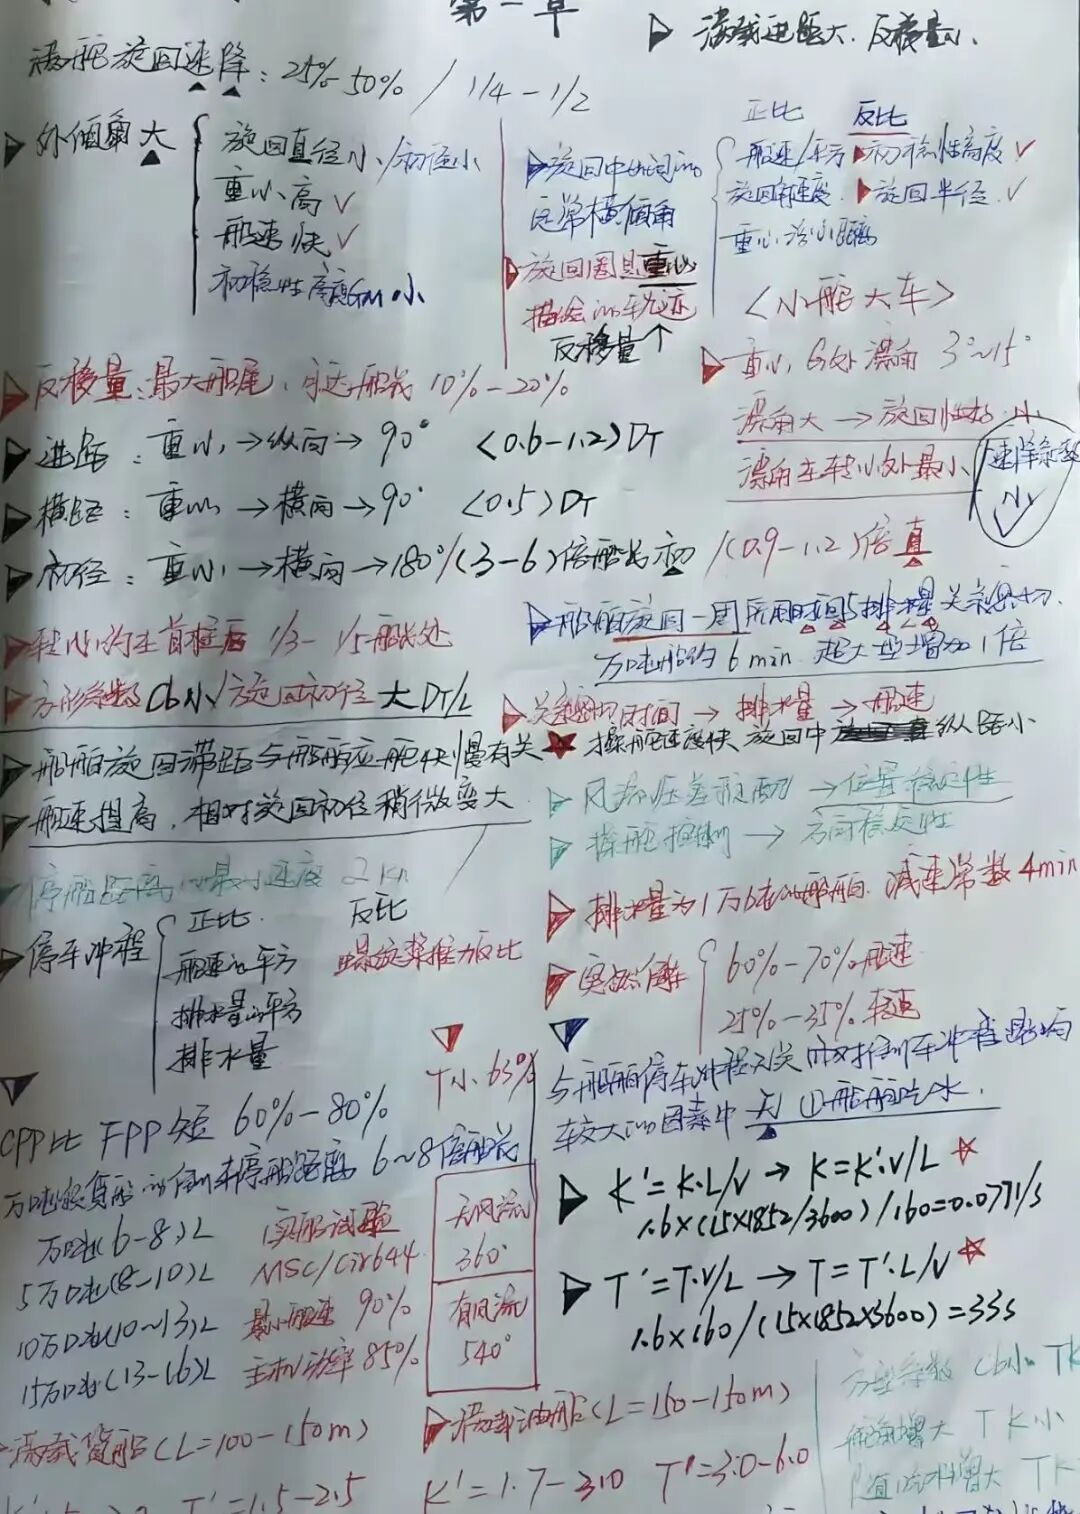 第一章
满载进距大.反移量小.
满舵旋回速降：25%-50% / 1/4-1/2
外倾角大
旋回直径小/初径小
重心高 ✓
船速快 ✓
初稳性高度GM小
旋回中出现的
定常横傾角
旋回圈是重心
描绘的轨迹
反移量↑
正比 反比
船速/平方 初稳性高度 ✓
旋回角速度 旋回半径 ✓
重心浮心距离
<小船大车>
反移量：最大船尾、可达船长10%-20%
重心G处漂角 3°~15°
漂角大→旋回性好.小
漂角在转心处最小
速降系数
小
进距：重心→纵向→90° <0.6-1.2>DT
横距：重心→横向→90° <0.5>DT
初径：重心→横向→180°/(3-6)倍船长初/(0.9-1.2)倍直
转心约在首柱后 1/3-1/5船长处
船舶旋回一周所用时间与排水量关系密切.
万吨船约6min.超大型增加1倍
方形系数Cb小/旋回初径大DT/L
关系密切时间→排水量→船速
船舶旋回滞距与船舶应舵快慢有关
操舵速度快 旋回中纵距小
船速提高.相对旋回初径稍微变大
风流压差→位置稳定性
操舵控制→方向稳定性
停船距离的最小速度 2kn
停车冲程
正比 反比
船速的平方 螺旋桨推力反比
排水量的平方
排水量
排水量为1万吨的船舶.减速常数4min
突然停车
60%-70%船速
25%-35%转速
T小 65%
CPP比FPP短 60%-80%
与船舶停车冲程无关而对倒车冲程影响
较大的因素中 无 ①船舶吃水.
万吨级货船的倒车停船距离6~8倍船长
万吨(6-8)L
5万吨(8-10)L
10万吨(10~13)L
15万吨(13-16)L
实船试验
MSC/Cir644
最小船速 90%
主机功率85%
无风流
360°
有风流
540°
K'=K·L/V→K=K'·V/L
1.6×(15×1852/3600)/160=0.077 1/s
T'=T·V/L→T=T'·L/V
1.6×160/(15×1852×3600)=33s
满载货船(L=100-150m)
满载油船(L=150-150m)
K'=1.7-3.0 T'=3.0-6.0
T'=1.5-2.5
方型系数Cb小 TK
舵角增大 TK小
增大 TK